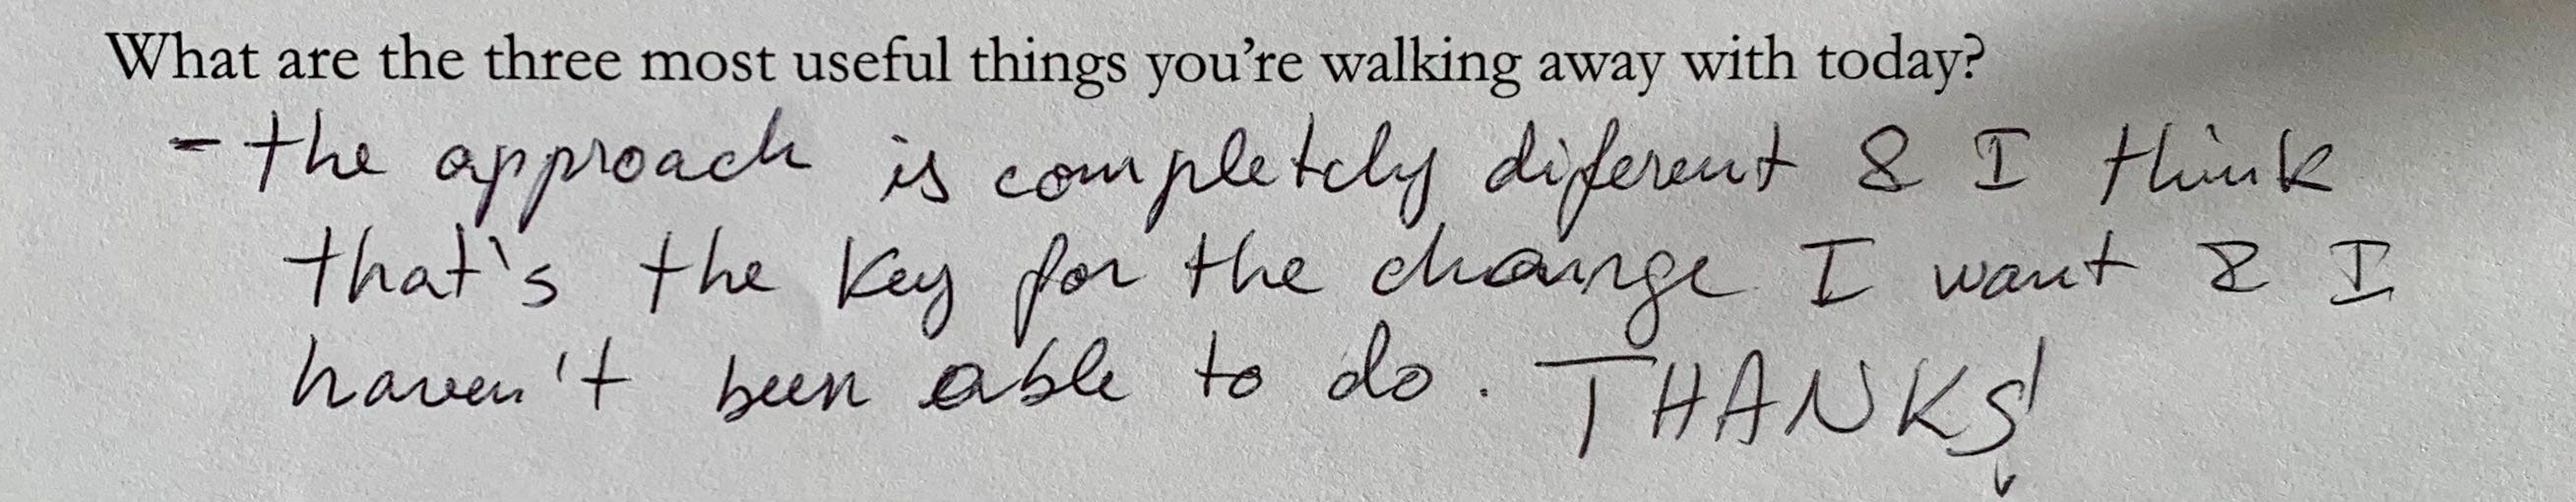 What are the three most useful things you're walking away with today?
- the approach is completely diferent & I think
that's the key for the change I want & I
haven't been able to do. THANKS!